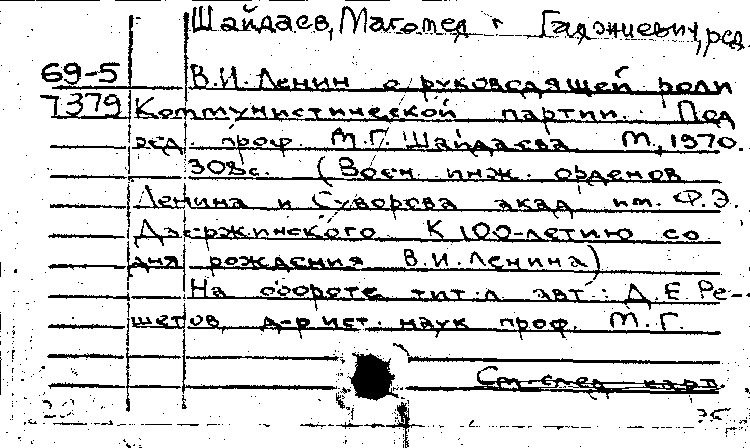 Шайдаев, Магомед Гаджиевич, ред.
69-5 В.И. Ленин о руководящей роли
7379 Коммунистической партии. Под
ред. проф. М.Г. Шайдаева. М., 1970.
308с. (Воен. инж. орденов
Ленина и Суворова акад. им. Ф.Э.
Дзержинского. К 100-летию со
дня рождения В.И. Ленина)
На обороте тит. л. авт.: Д.Е. Ре-
шетов, д-р ист. наук проф. М.Г.
См. след. карт.